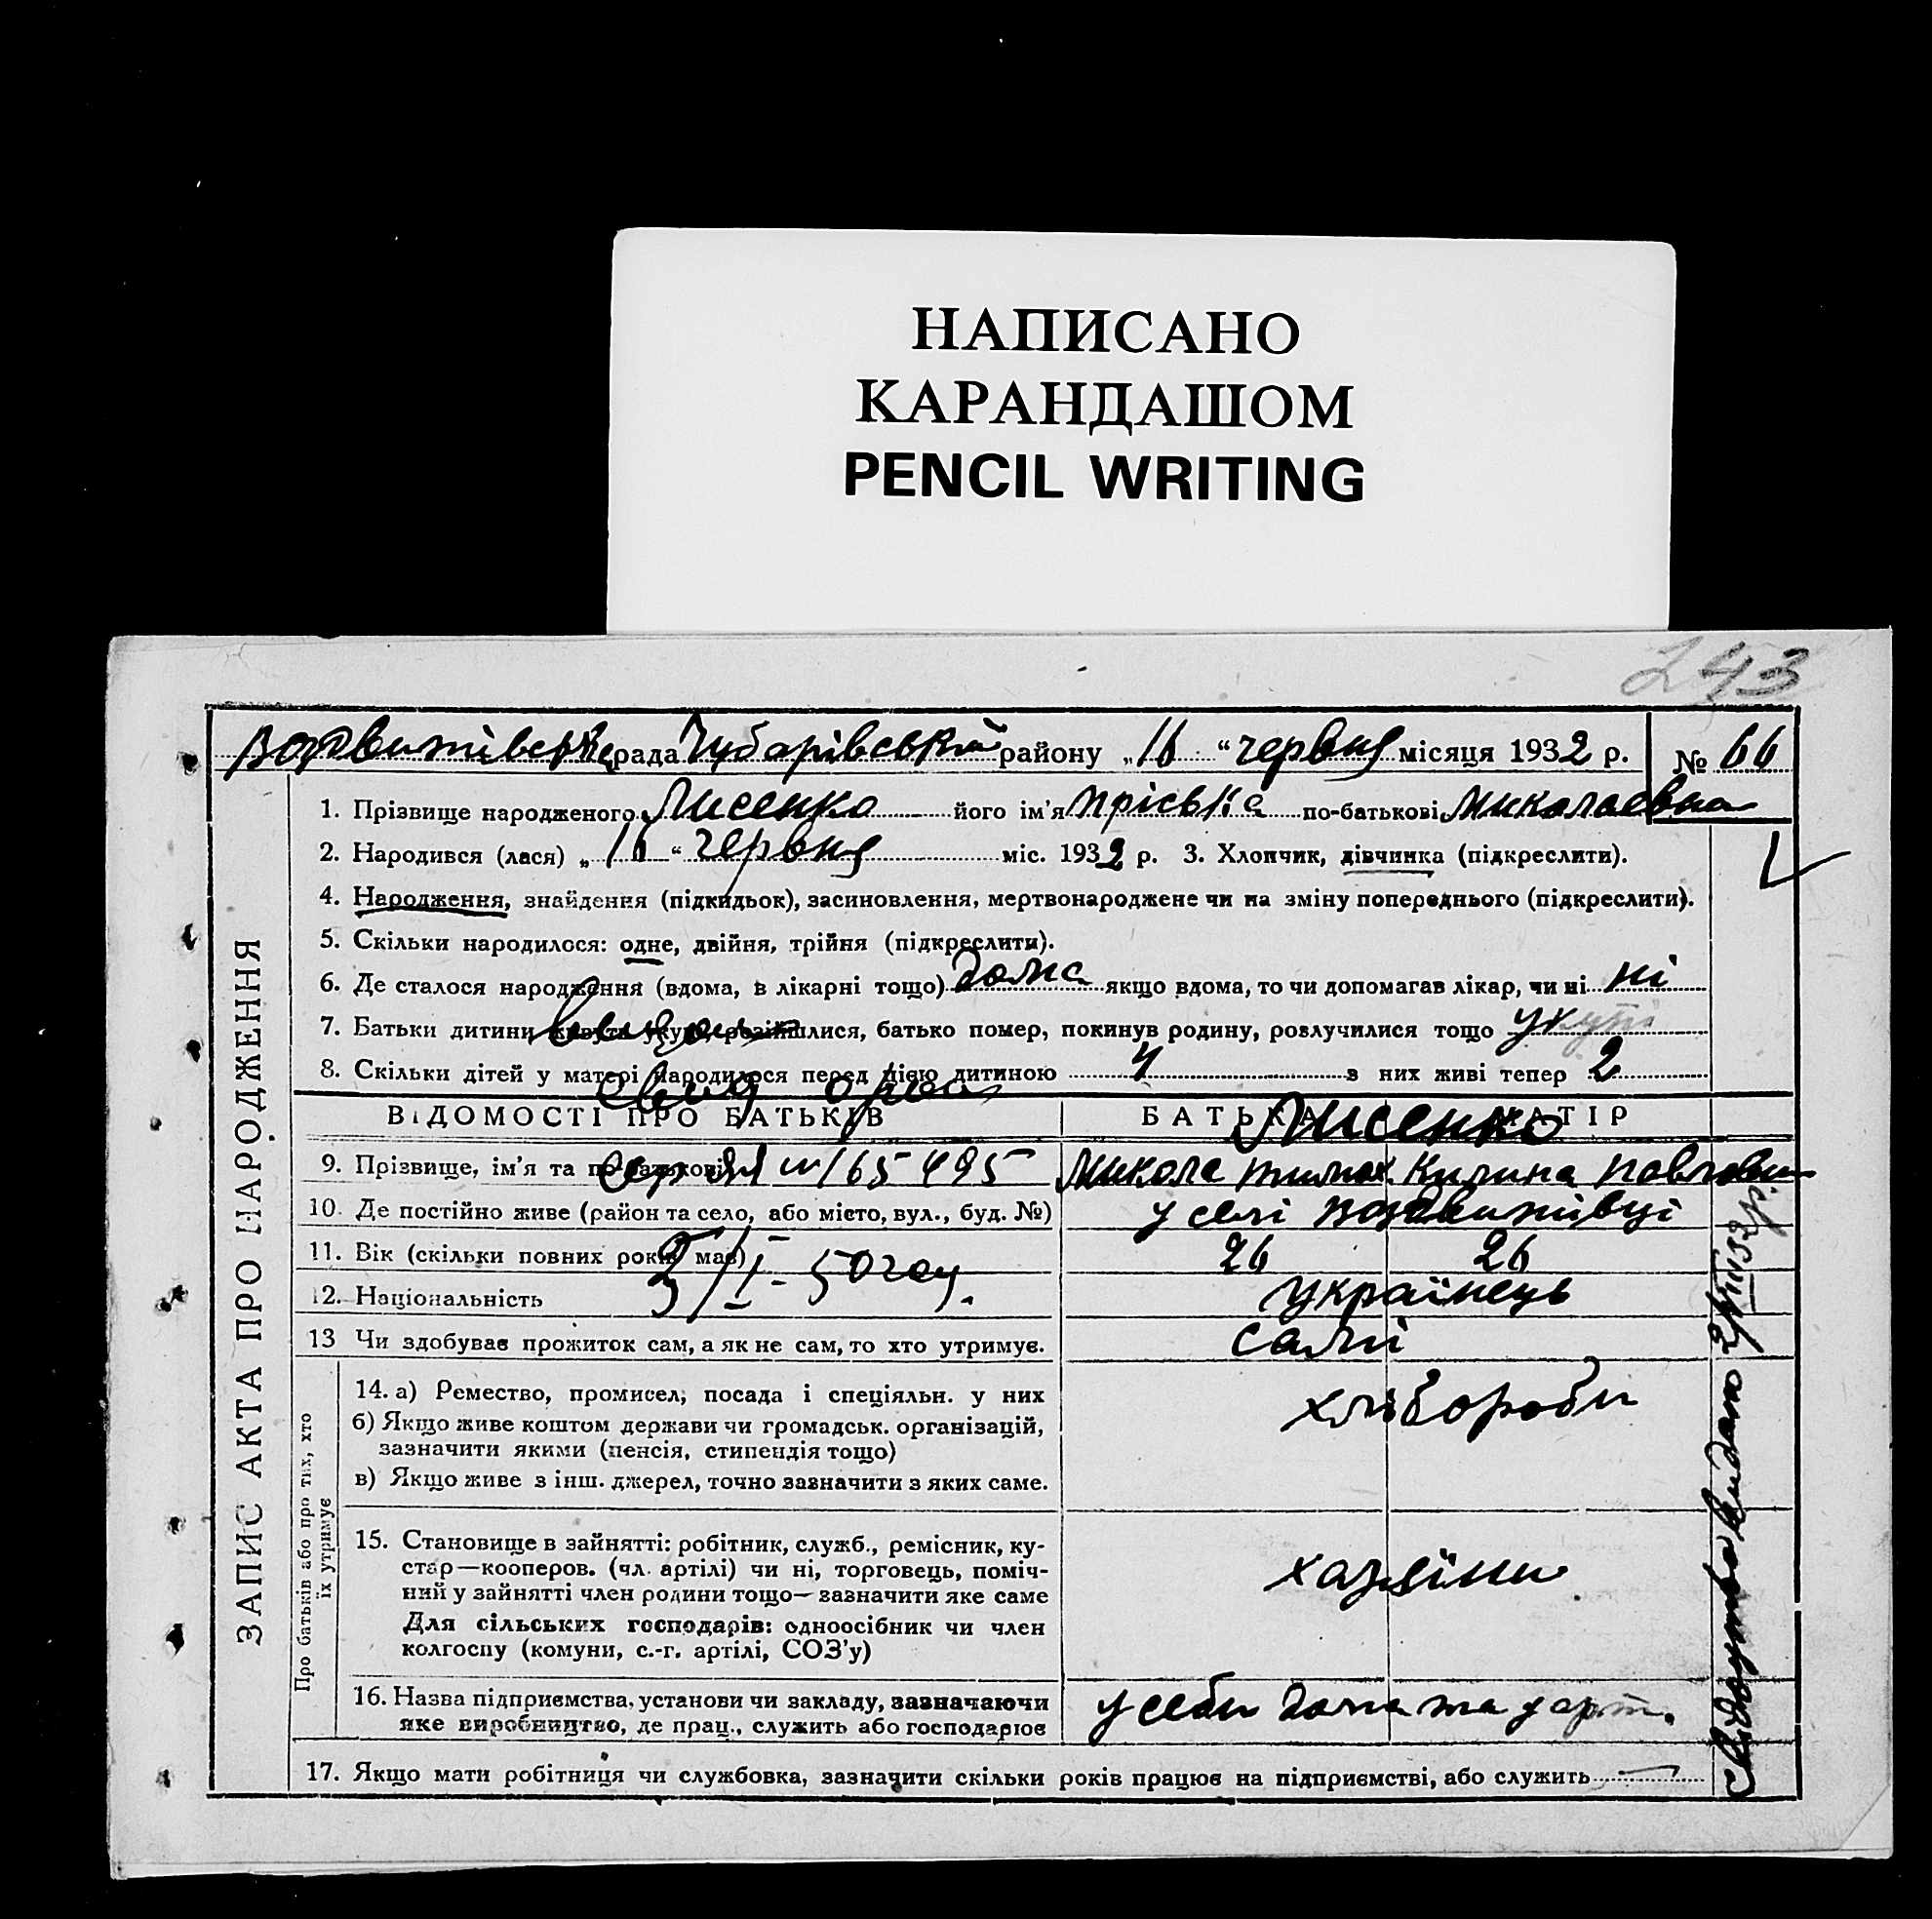 НАПИСАНО
КАРАНДАШОМ
PENCIL WRITING
243
Воздвижівська рада Чубарівський району „16 “ червня місяця 1932 р. № 66
ЗАПИС АКТА ПРО НАРОДЖЕННЯ
1. Прізвище народженого Лисенко його ім’я Пріська по-батькові Миколаевна
2. Народився (лася) „ 16 “ червня міс. 1932 р. 3. Хлопчик, дівчинка (підкреслити).
4. Народження, знайдення (підкидьок), засиновлення, мертвонароджене чи на зміну попереднього (підкреслити).
5. Скільки народилося: одне, двійня, трійня (підкреслити).
6. Де сталося народження (вдома, в лікарні тощо) дома якщо вдома, то чи допомагав лікар, чи ні ні
7. Батьки дитини живуть укупі, розійшлися, батько помер, покинув родину, розлучилися тощо укупі
8. Скільки дітей у матері народилося перед цією дитиною 4 з них живі тепер 2
ВІДОМОСТІ ПРО БАТЬКІВ БАТЬКА МАТІР
Лисенко
9. Прізвище, ім’я та по-батькові Микола Тимох. Килина Павловна
10. Де постійно живе (район та село, або місто, вул., буд. №) у селі Воздвижівці
11. Вік (скільки повних років має) 26 26
12. Національність українець
13 Чи здобуває прожиток сам, а як не сам, то хто утримує. самі
Про батьків або про тих, хто їх утримує
14. а) Ремество, промисел, посада і спеціяльн. у них хлібороби
б) Якщо живе коштом держави чи громадськ. організацій,
зазначити якими (пенсія, стипендія тощо)
в) Якщо живе з інш. джерел, точно зазначити з яких саме.
15. Становище в зайнятті: робітник, служб., ремісник, ку-
стар—кооперов. (чл. артілі) чи ні, торговець, поміч-
ний у зайнятті член родини тощо—зазначити яке саме хазяіни
Для сільських господарів: одноосібник чи член
колгоспу (комуни, с.-г. артілі, СОЗ’у)
16. Назва підприємства, установи чи закладу, зазначаючи
яке виробництво, де прац., служить або господарює у себи дома та у арт.
17. Якщо мати робітниця чи службовка, зазначити скільки років працює на підприємстві, або служить —
165495
5/I-50
видано